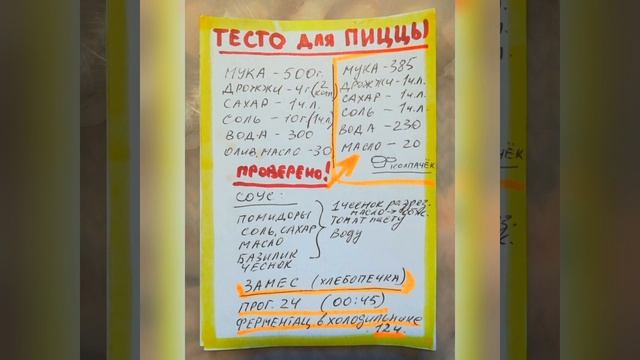 ТЕСТО для ПИЦЦЫ
МУКА - 500 г.
ДРОЖЖИ - 4 г (2
САХАР - 1 ч.л.
СОЛЬ - 10 г (1 ч.л)
ВОДА - 300
ОЛИВ. МАСЛО - 30
ПРОВЕРЕНО!
МУКА - 385
ДРОЖЖИ - 1 ч.л.
САХАР - 1 ч.л.
СОЛЬ - 1 ч.л.
ВОДА - 230
МАСЛО - 20
КОЛПАЧЁК
СОУС:
ПОМИДОРЫ
СОЛЬ, САХАР
МАСЛО
БАЗИЛИК
ЧЕСНОК
1 ЧЕСНОК разрез.
МАСЛО →
ТОМАТ ПАСТУ
ВОДУ
ЗАМЕС (ХЛЕБОПЕЧКА)
ПРОГ. 24 (00:45)
ФЕРМЕНТАЦ В ХОЛОДИЛЬНИКЕ
12 ч.